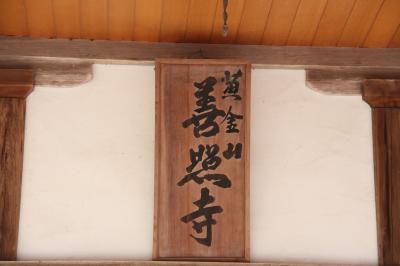 黄金山
善照寺